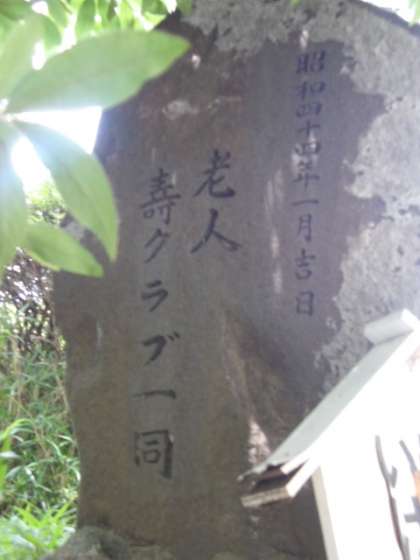 昭和四十四年一月吉日
老人
壽クラブ一同